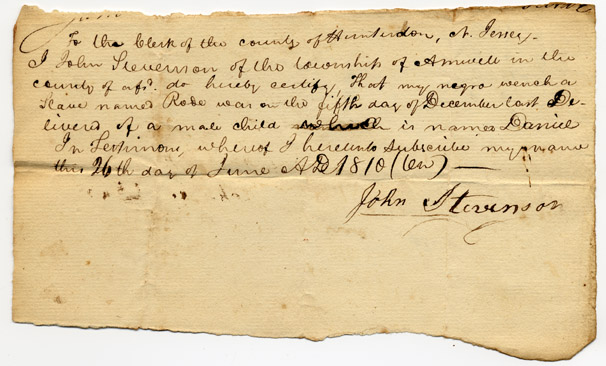 To the Clerk of the county of Hunterdon, N. Jersey.
I John Stevenson of the township of Amwell in the
county of afs.d do hereby certify, That my negro wench a
Slave named Rode was on the fifth day of December last De-
livered of a male child which is named Daniel
In Testimony whereof I hereunto Subscribe my name
this 26th day of June AD 1810 (ten)
John Stevenson